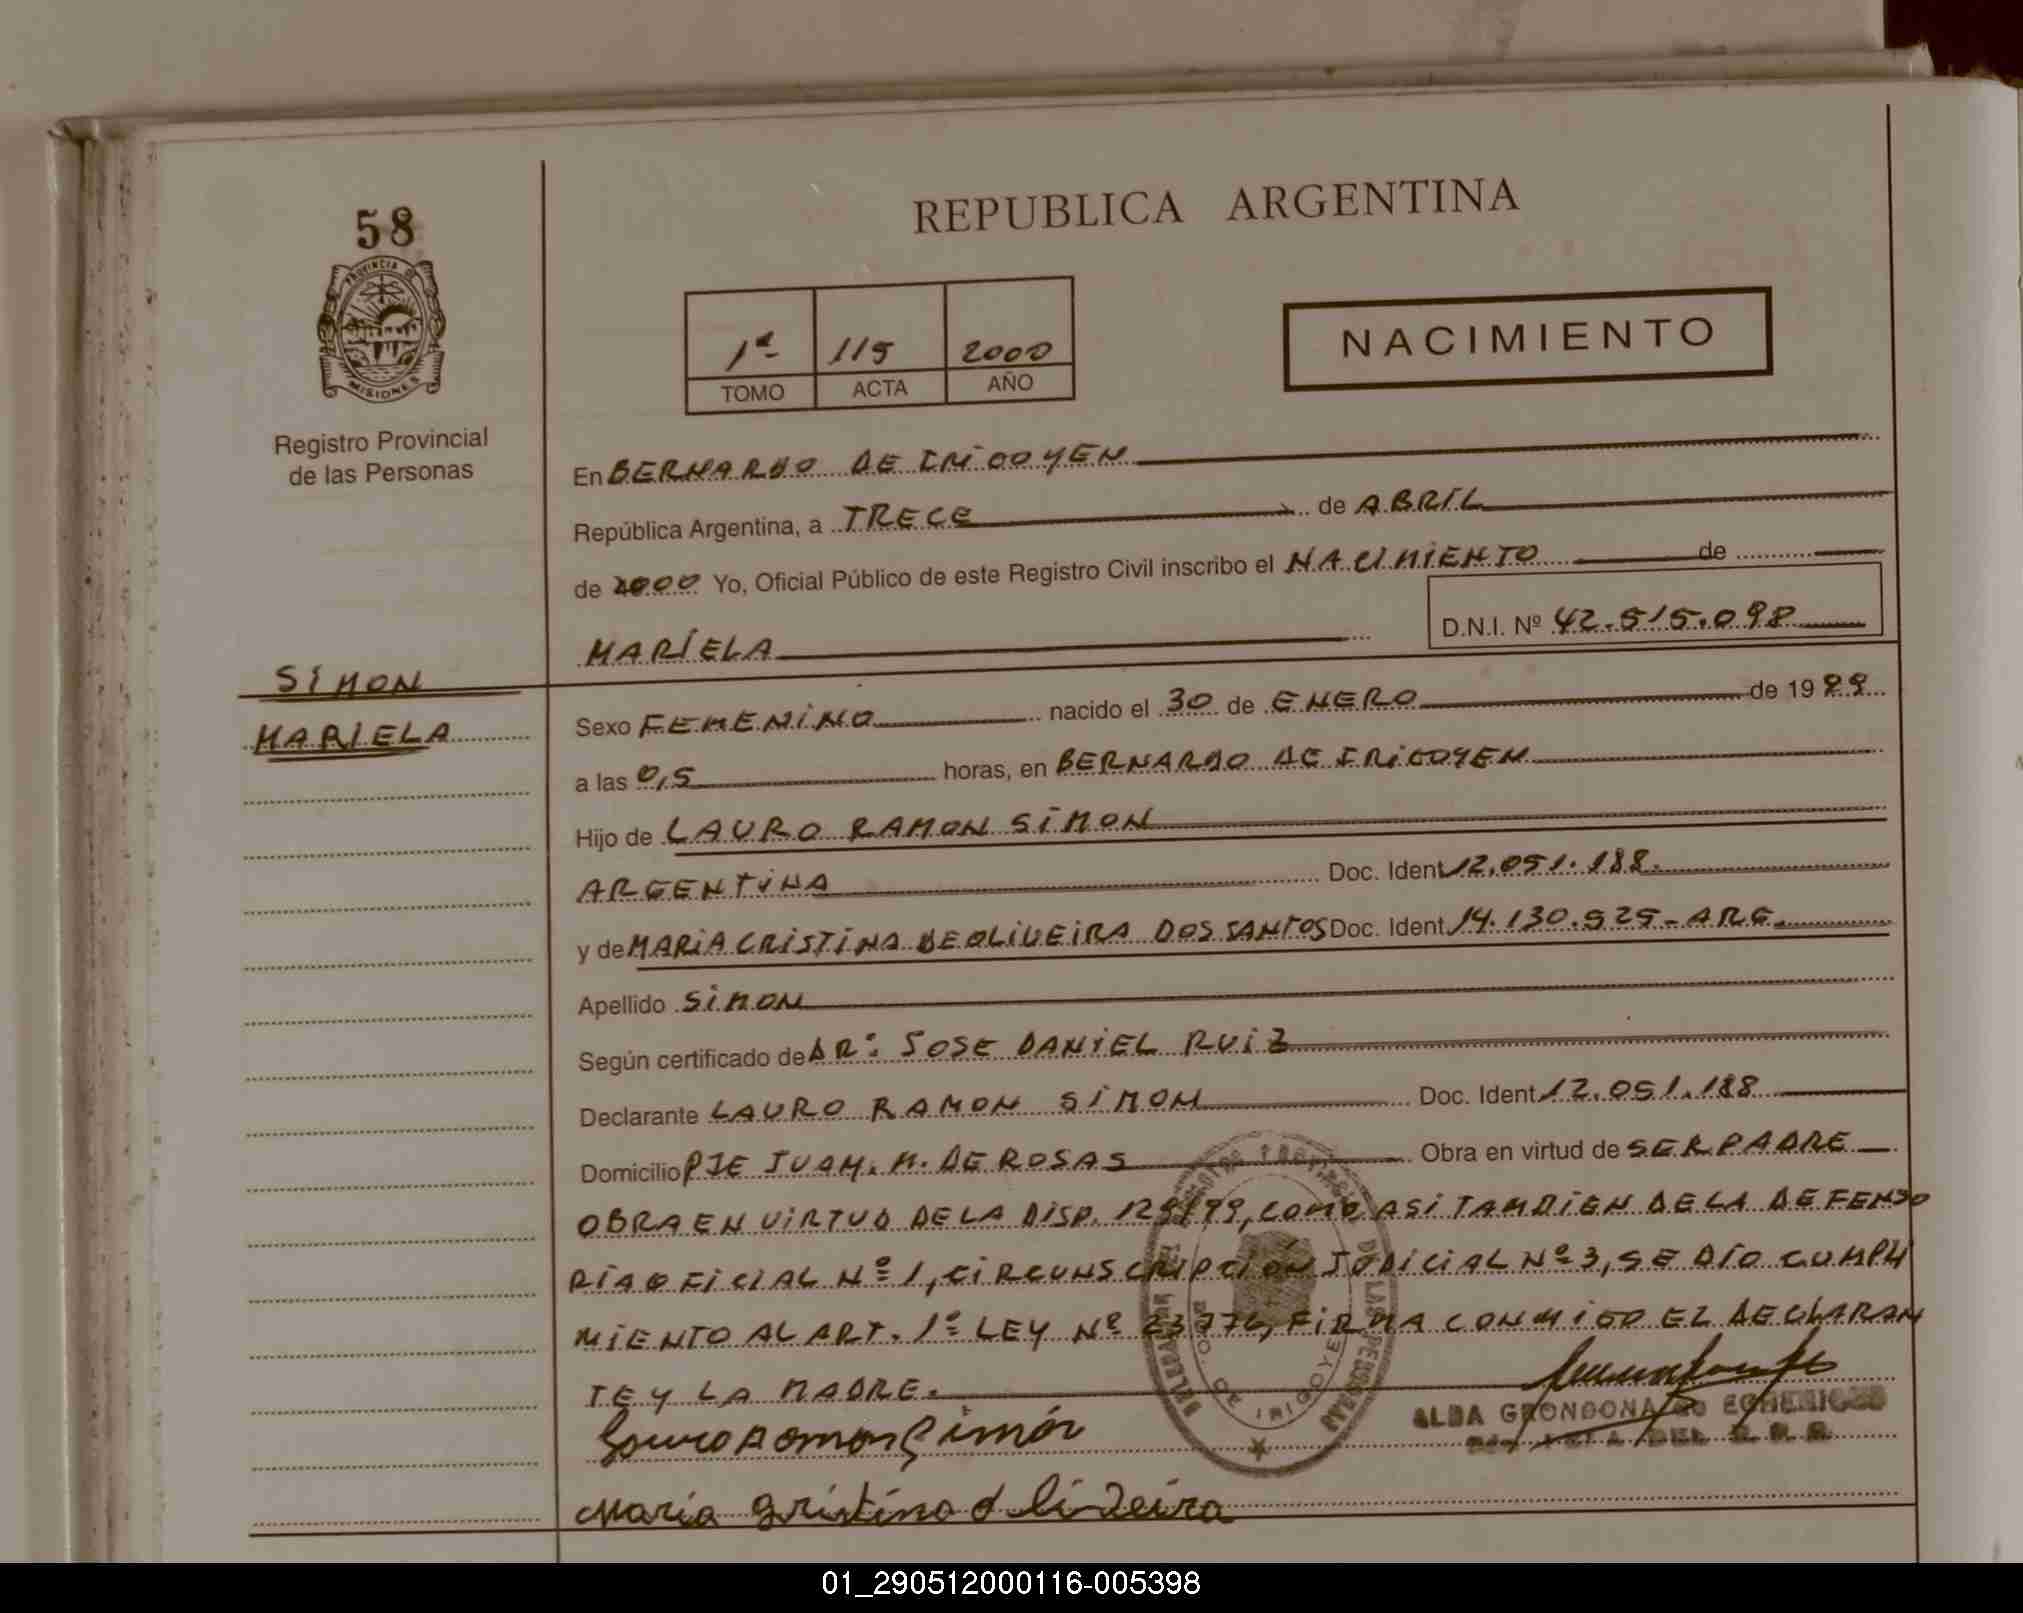 58
PROVINCIA DE
MISIONES
Registro Provincial
de las Personas
SIMON
MARIELA
REPUBLICA ARGENTINA
1º 115 2000
TOMO ACTA AÑO
NACIMIENTO
En BERNARDO DE IRIGOYEN
República Argentina, a TRECE de ABRIL
de 2000 Yo, Oficial Público de este Registro Civil inscribo el NACIMIENTO de
MARIELA D.N.I. Nº 42.515.098
Sexo FEMENINO nacido el 30 de ENERO de 19 99
a las 0,5 horas, en BERNARDO DE IRIGOYEN
Hijo de LAURO RAMON SIMON
ARGENTINA Doc. Ident 12.051.188.
y de MARIA CRISTINA DEOLIVEIRA DOS SANTOS Doc. Ident 14.130.525-ARG.
Apellido SIMON
Según certificado de DR: JOSE DANIEL RUIZ
Declarante LAURO RAMON SIMON Doc. Ident 12.051.188
Domicilio PJE JUAN. M. DE ROSAS Obra en virtud de SER PADRE
OBRA EN VIRTUD DE LA DISP. 129/99, COMO ASI TAMBIEN DE LA DEFENSO
RIA OFICIAL Nº 1, CIRCUNSCRIPCIÓN JUDICIAL Nº 3, SE DIO CUMPLI
MIENTO AL ART. 1º LEY Nº 23776, FIRMA CONMIGO EL DECLARAN
TE Y LA MADRE.
Lauro Ramon Simón
ALBA GRONDONA de ECHENIQUE
DEL R.P.P.
Maria Cristina d Oliveira
DE IRIGOYEN
01_290512000116-005398